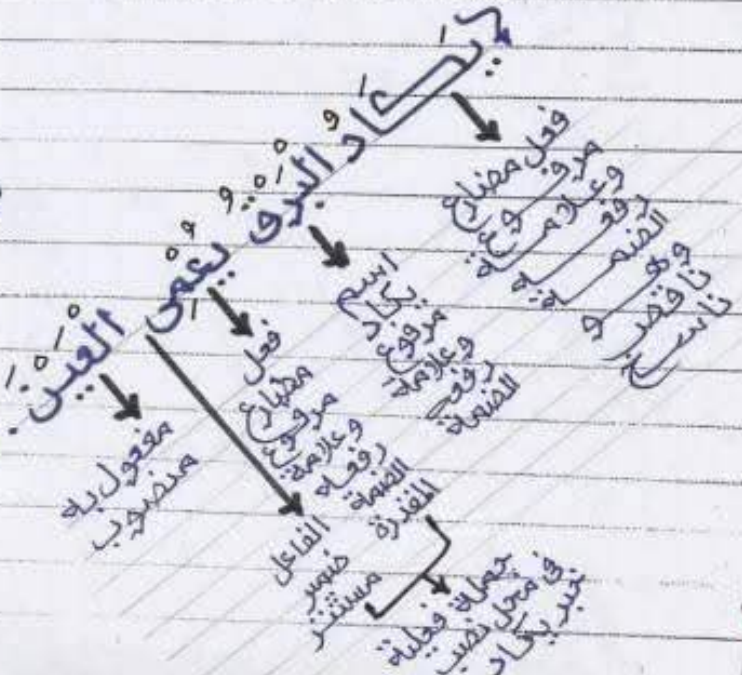 يَكَادُ الْبَرْقُ يُعْمِى الْعَيْنَ.
فعل مضارع
مرفوع
وعلامة
رفعه
الضمة
وهو
ناقص
ناسخ
اسم
يكاد
مرفوع
وعلامة
رفعه
الضمة
فعل
مضارع
مرفوع
وعلامة
رفعه
الضمة
المقدرة
الفاعل
ضمير
مستتر
جملة فعلية
فى محل نصب
خبر يكاد
مفعول به
منصوب